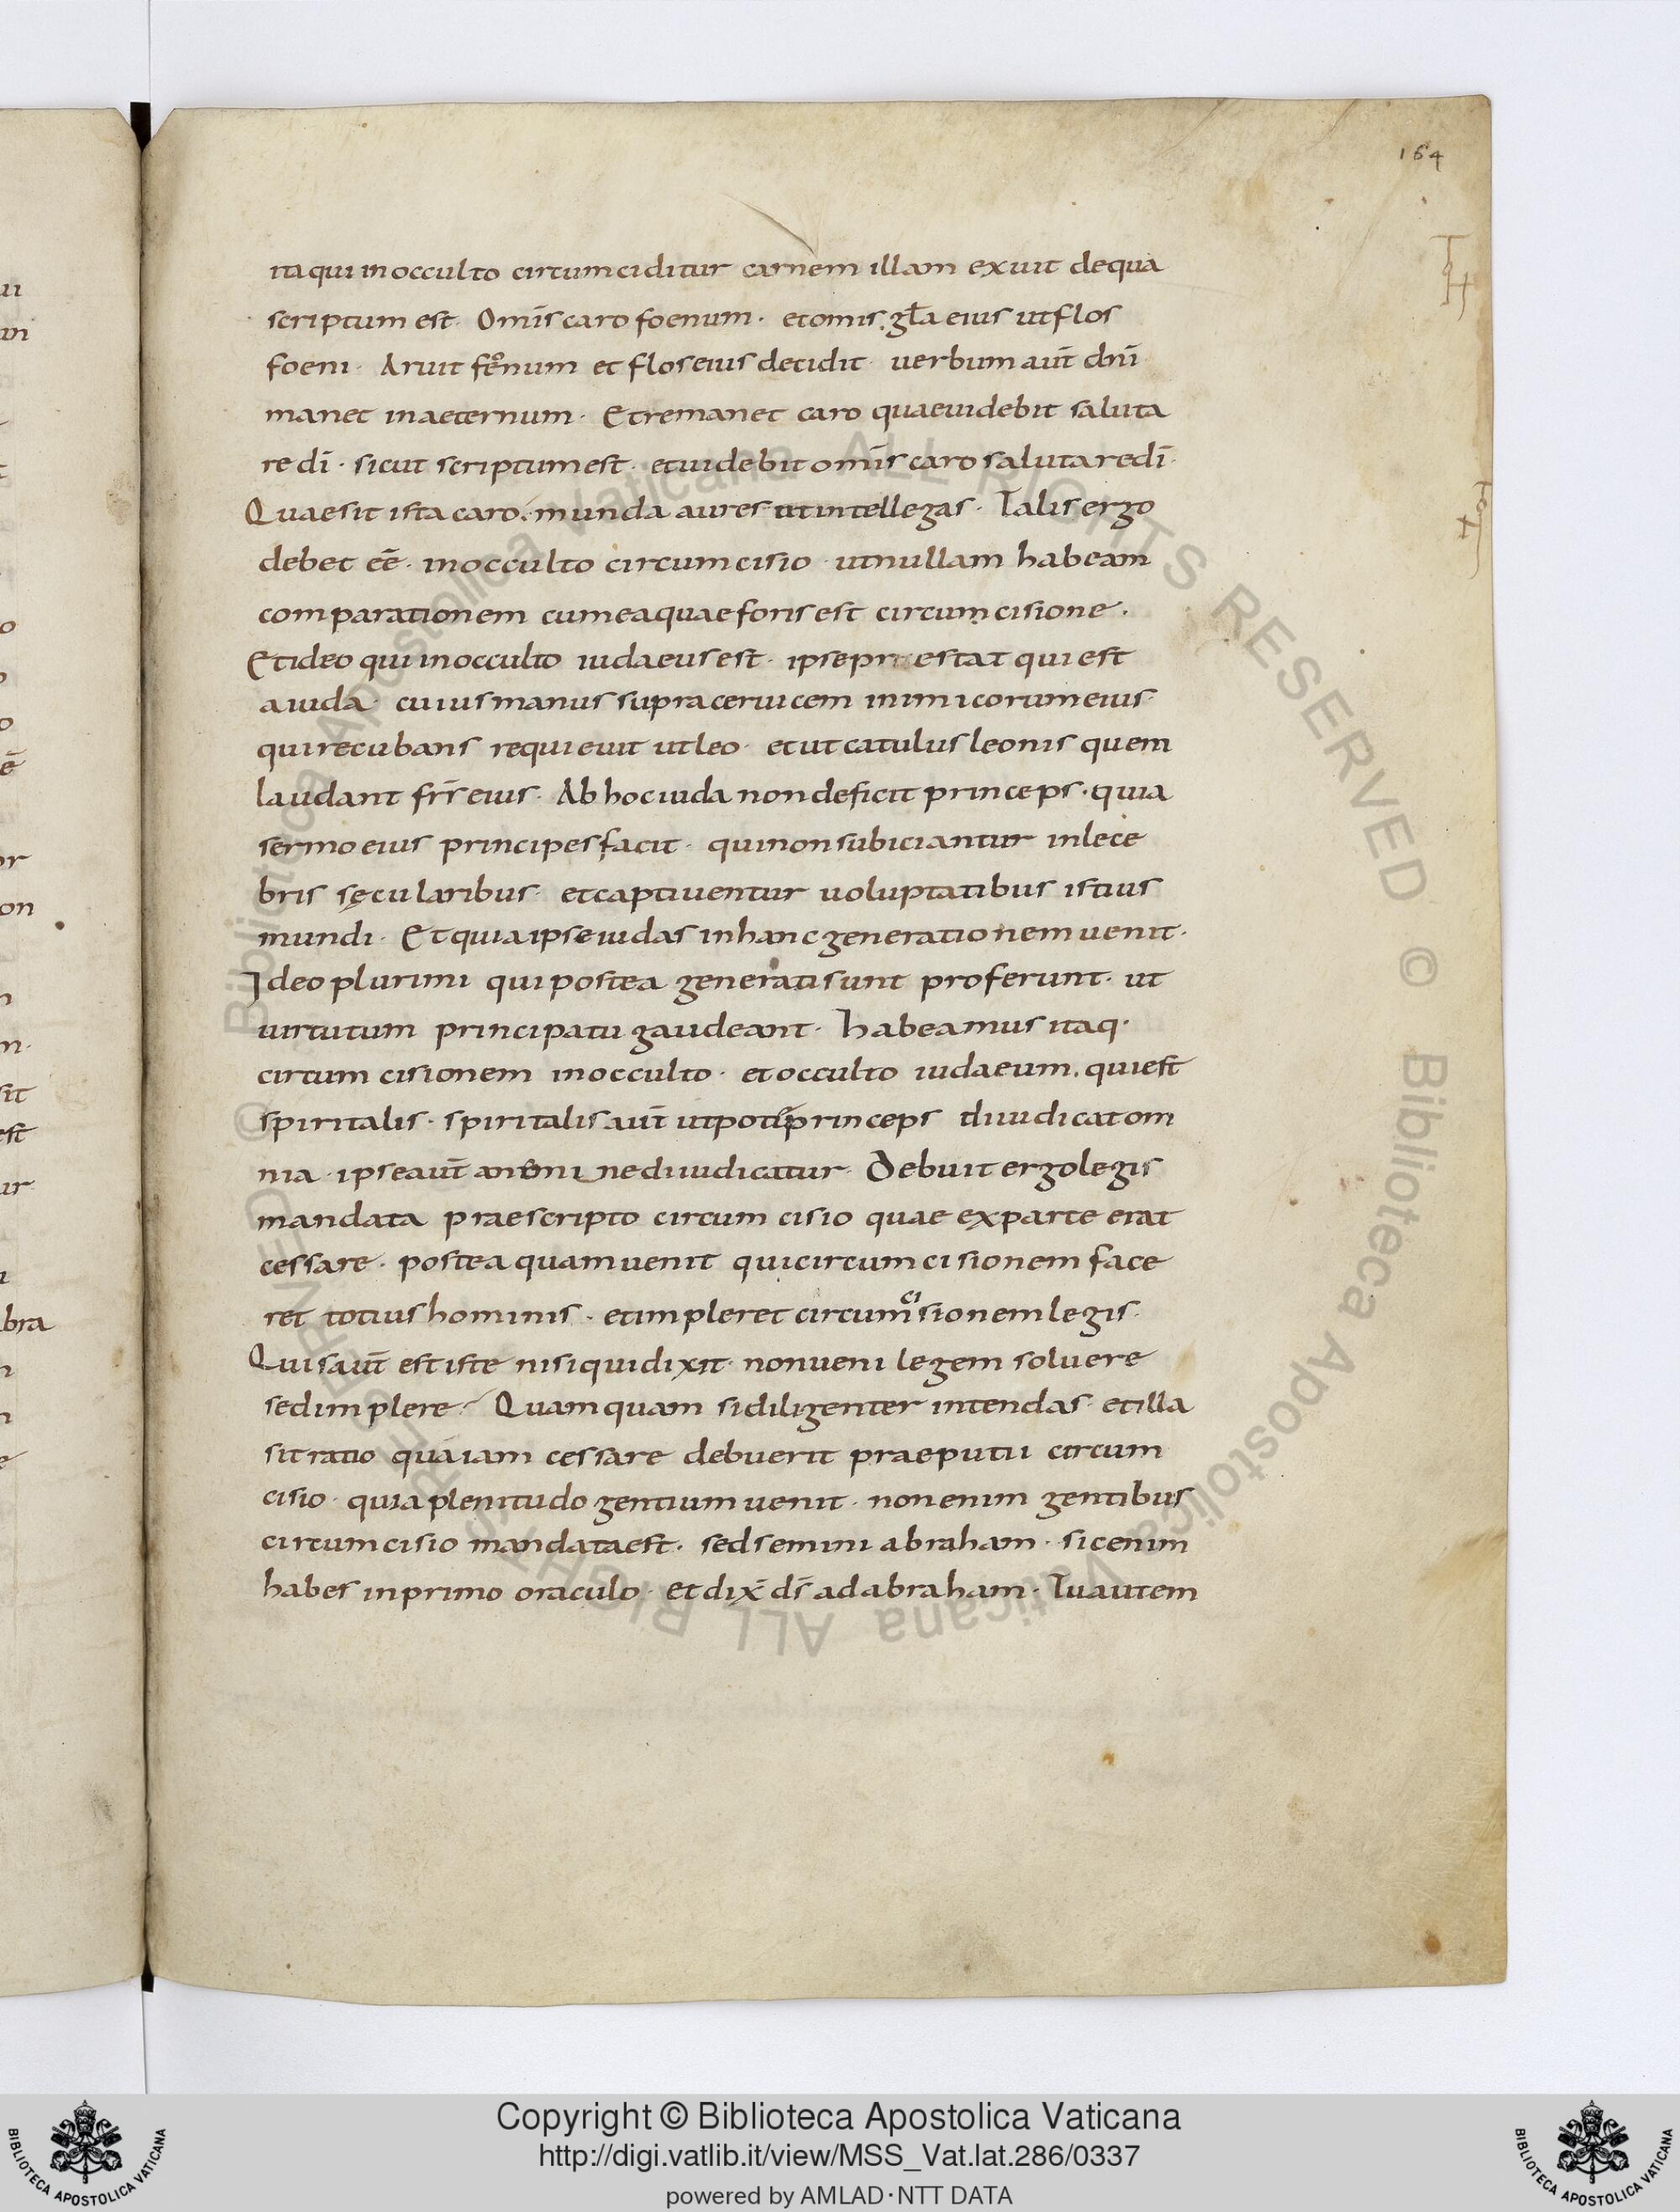 164
ita qui in occulto circumciditur carnem illam exuit de qua
scriptum est · Om̄is caro foenum · et omis gl̄a eius ut flos
foeni · Aruit fęnum et flos eius decidit · uerbum aut̄ dn̄i
manet in aeternum · Et remanet caro quae uidebit saluta
re dī · sicut scriptum est · et uidebit om̄is caro salutare dī ·
Quae sit ista caro · munda aures ut intellegas · Talis ergo
debet eē · in occulto circumcisio · ut nullam habeam
comparationem cum ea quae foris est circumcisione ·
Et ideo qui in occulto iudaeus est · ipse pr estat qui est
a iuda · cuius manus supra ceruicem inimicorum eius ·
qui recubans requieuit ut leo · et ut catulus leonis quem
laudant fr̄s eius · Ab hoc iuda non deficit princeps · quia
sermo eius principes facit · qui non subiciantur inlece
bris sęcularibus · et captiuentur uoluptatibus istius
mundi · Et quia ipse iudas in hanc generationem uenit ·
Ideo plurimi qui postea generati sunt proferunt · ut
uirtutum principatu gaudeant · habeamus itaq·
circumcisionem in occulto · et occulto iudaeum · qui est
spiritalis · spiritalis aut̄ utpote princeps diiudicat om
nia · ipse aut̄ a nemine diiudicatur · Debuit ergo legis
mandata praescripto circumcisio quae ex parte erat
cessare · postea quam uenit qui circumcisionem face
ret totius hominis · et impleret circumcisionem legis ·
Quis aut̄ est iste nisi qui dixit · non ueni legem soluere
sed implere · Quamquam si diligenter intendas · et illa
sit ratio qua iam cessare debuerit praeputii circum
cisio · quia plenitudo gentium uenit · non enim gentibus
circumcisio mandata est · sed semini abraham · sic enim
habes in primo oraculo · et dix̄ ds̄ ad abraham · Tu autem
Copyright © Biblioteca Apostolica Vaticana
http://digi.vatlib.it/view/MSS_Vat.lat.286/0337
powered by AMLAD·NTT DATA
BIBLIOTECA APOSTOLICA VATICANA
BIBLIOTECA APOSTOLICA VATICANA
© Biblioteca Apostolica Vaticana ALL RIGHTS RESERVED © Biblioteca Apostolica Vaticana ALL RIGHTS RESERVED